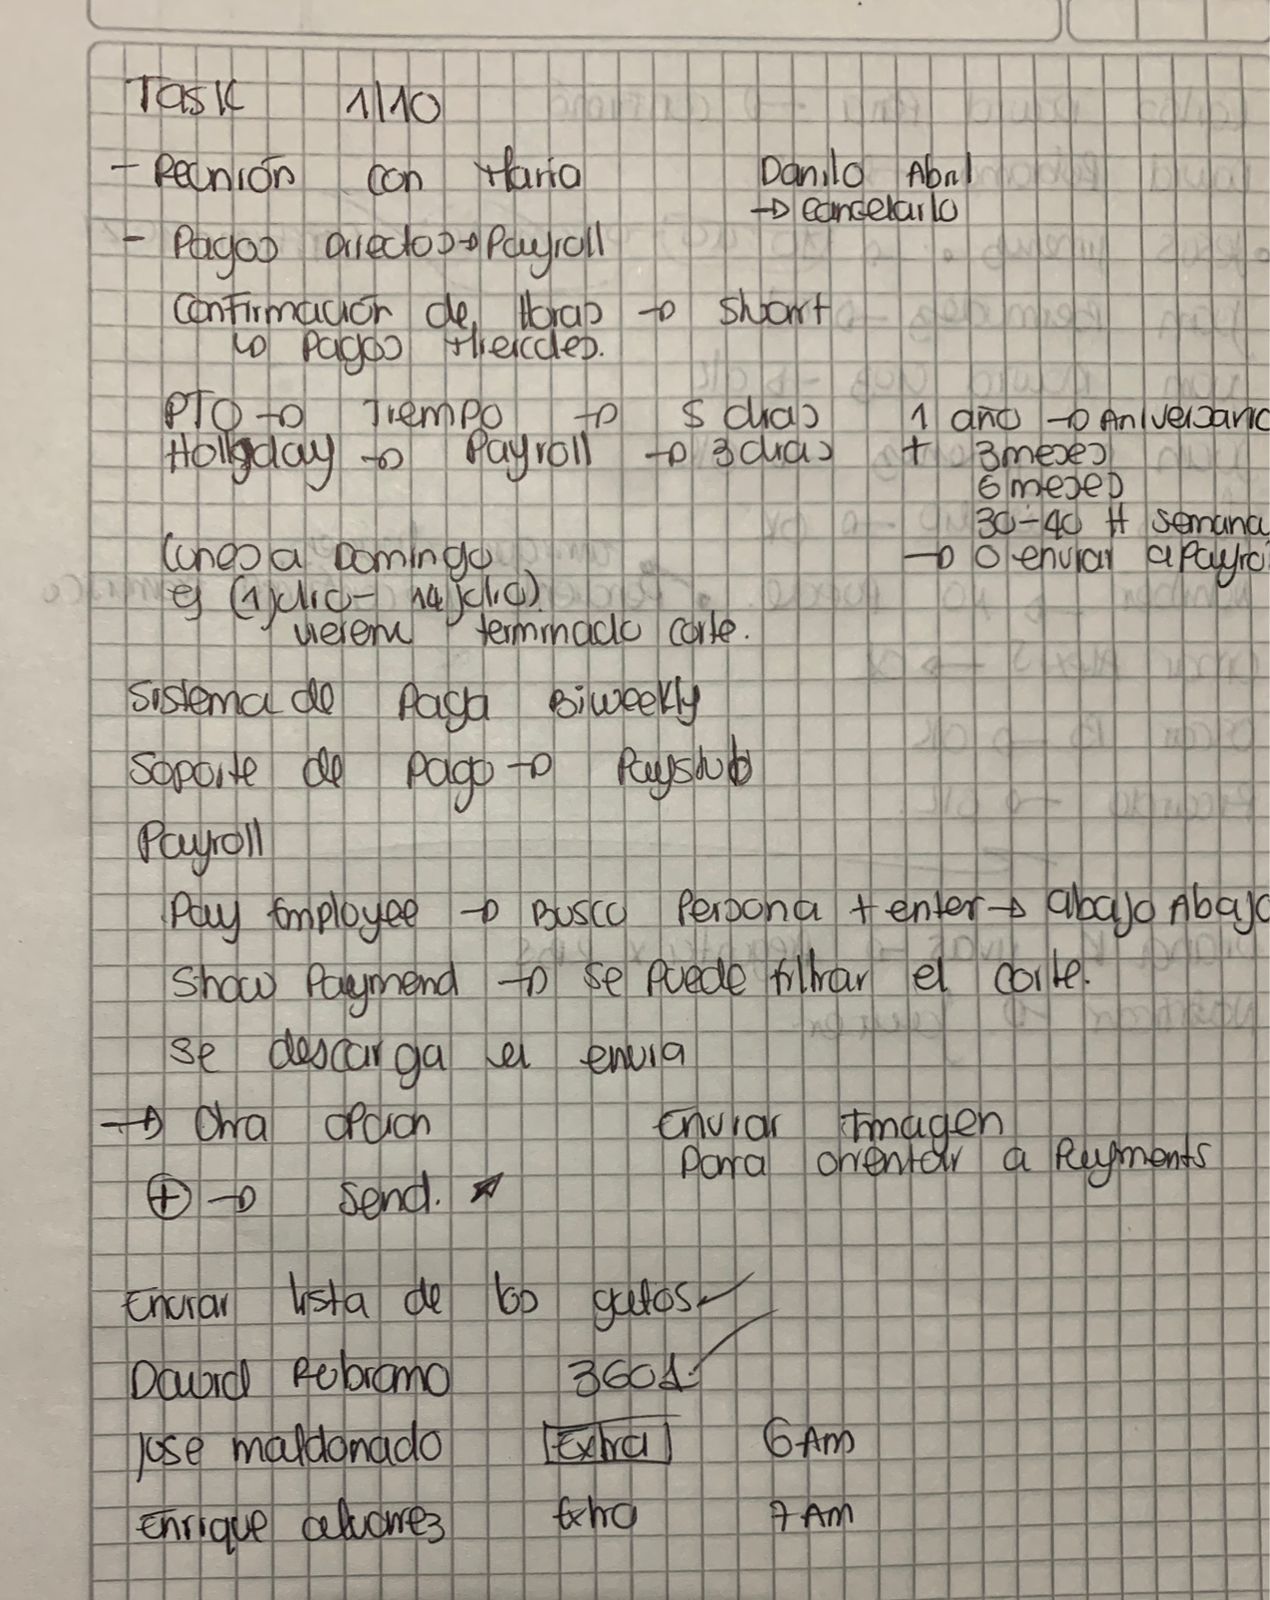 Task 1/10
- Reunión con Maria Danilo Abril
→ cancelarlo
- Pagos directos → Payroll
Confirmación de Horas → short
↳ Pagos Miercoles.
PTO → Tiempo → 5 dias 1 año → Aniversario
Holyday → Payroll → 3 dias + 3 meses
6 meses
30-40 H semana
Lunes a Domingo → O enviar a Payro
ej (1) dia - 14 dia)
vierene terminado corte.
Sistema de Paga Biweekly
Soporte de pago → Paystub
Payroll
Pay Employee → Busco Persona + enter → abajo Abajo
Show Paymend → se puede filtrar el corte.
se descarga el envia
→ Otra opcion Enviar Imagen
para orientar a Payments
⊕ → send.
Enviar lista de los gatos ✓
David Pebramo 3601 ✓
Jose maldonado Extra 6 AM
Enrique alvarez Extra 7 AM